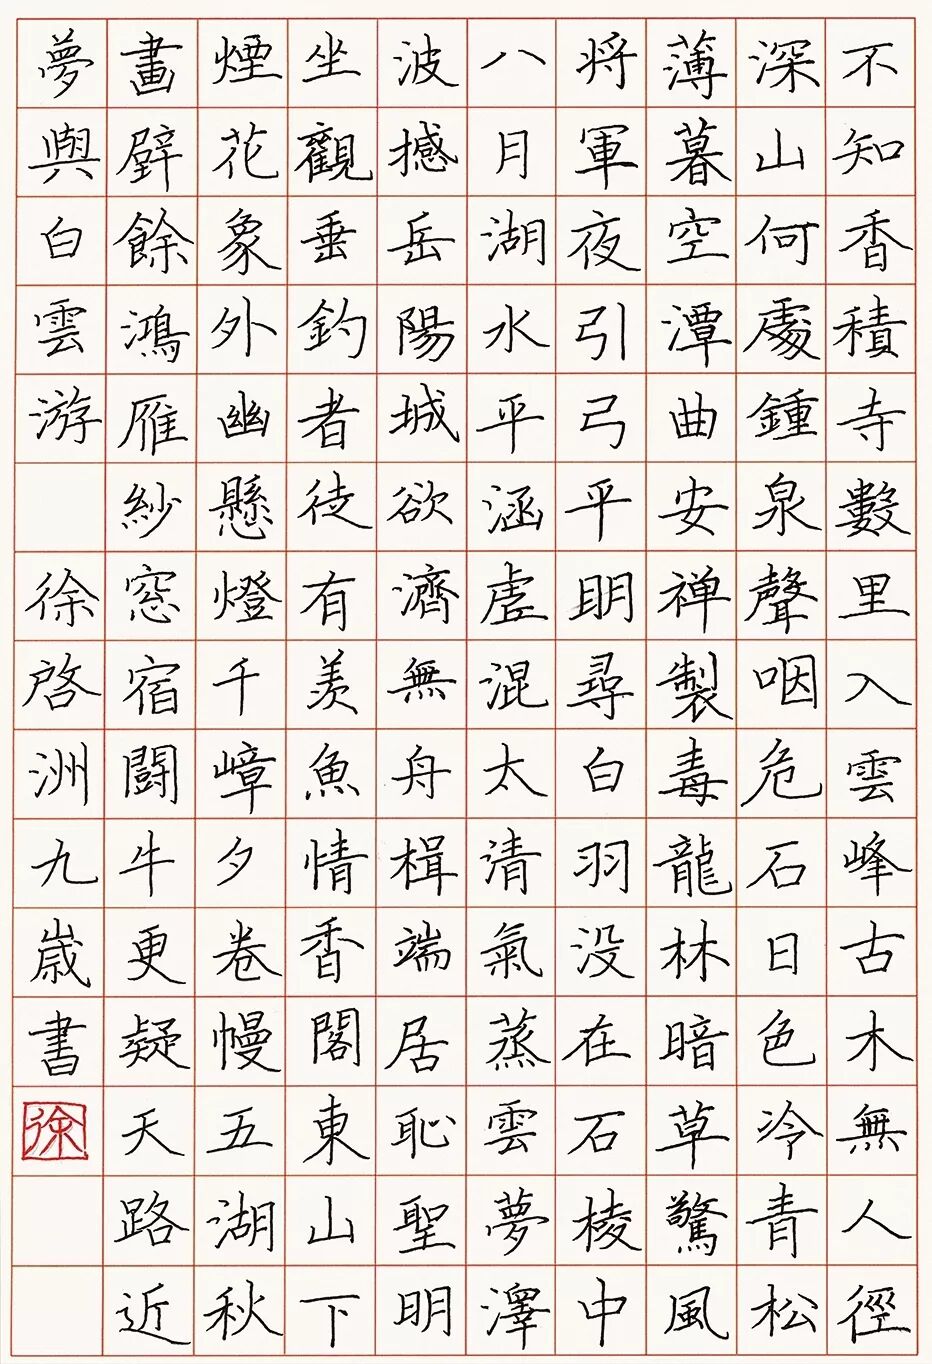 不知香積寺數里入雲峰古木無人徑
深山何處鍾泉聲咽危石日色冷青松
薄暮空潭曲安禅製毒龍林暗草驚風
将軍夜引弓平明尋白羽没在石棱中
八月湖水平涵虛混太清氣蒸雲夢澤
波撼岳陽城欲濟無舟楫端居恥聖明
坐觀垂釣者徒有羡魚情香閣東山下
煙花象外幽懸燈千嶂夕卷幔五湖秋
畫壁餘鴻雁紗窓宿闘牛更疑天路近
夢與白雲游 徐啓洲九歲書
徐